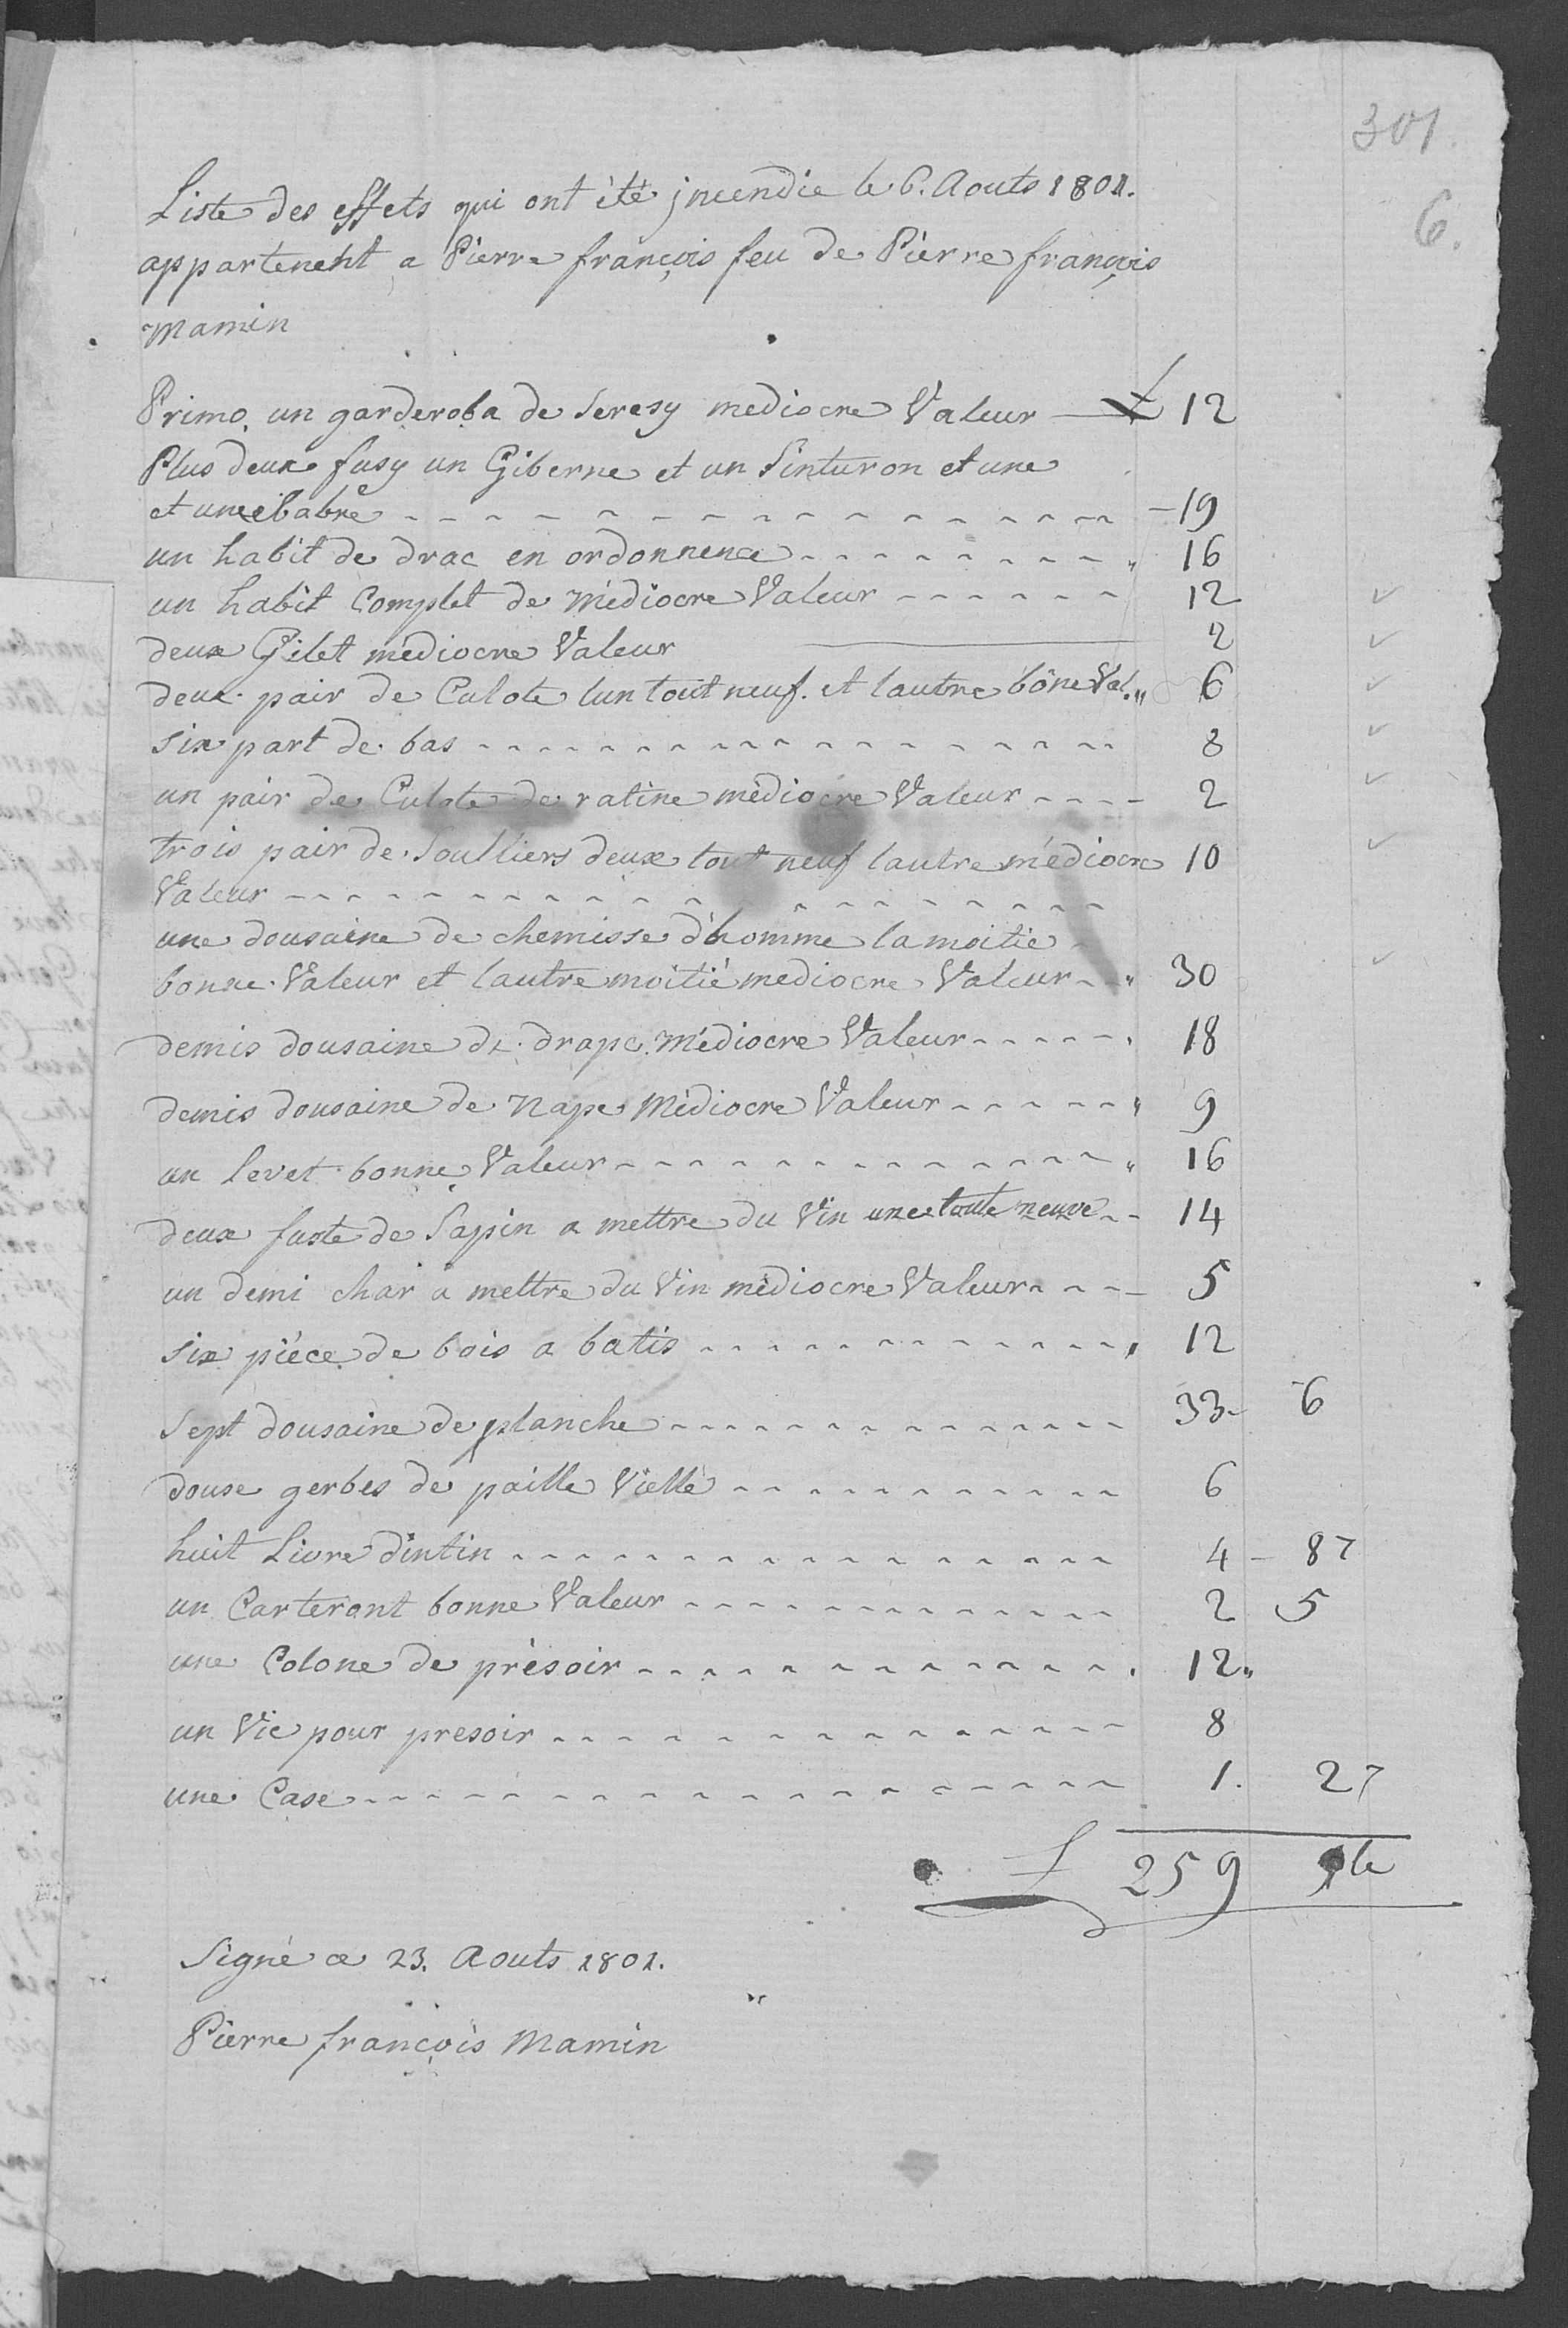 301.
6.
Liste des effets qui ont été jncendie le 6. Aouts 1801.
appartenent a Pierre françois feu de Pierre françois
Mamin
Primo, un garderoba de Seresy mediocre Valeur — £ 12
Plus deux fusy un Giberne et un Sinturon et une
et une Sabre - - - 19
un habit de drac en ordonnence - - - 16
un habit Complet de Médiocre Valeur - - - 12
deux Gilet médiocre Valeur — 2
deux pair de Culote lun tout neuf. et lautre bone Val. " 6
six part de bas - - - 8
un pair de Culote de ratine médiocre Valeur - - - 2
trois pair de Soulliers deux tout neuf lautre médiocre 10
Valeur - - -
une dousaine de chemisse d'homme la moitié
bonne Valeur et lautre moitié mediocre Valeur - " 30
demis dousaine de drape Médiocre Valeur - - - 18
demis dousaine de Nape Médiocre Valeur - - - " 9
un levet bonne Valeur - - - " 16
deux fuste de Sapin a mettre du Vin une toute neuve - - 14
un demi char a mettre du Vin médiocre Valeur - - - 5
six piéce de bois a batis - - - 12
Sept dousaine de planche - - - 33 - 6
douse gerbes de paille Vielle - - - 6
huit Livre dintin - - - 4 - 87
un Carteront bonne Valeur - - - 2 5
une Colone de présoir - - - 12 "
un Vic pour presoir - - - 8
une Case - - - 1. 27
£ 259
Signé ce 23. Aouts 1801.
Pierre françois Mamin